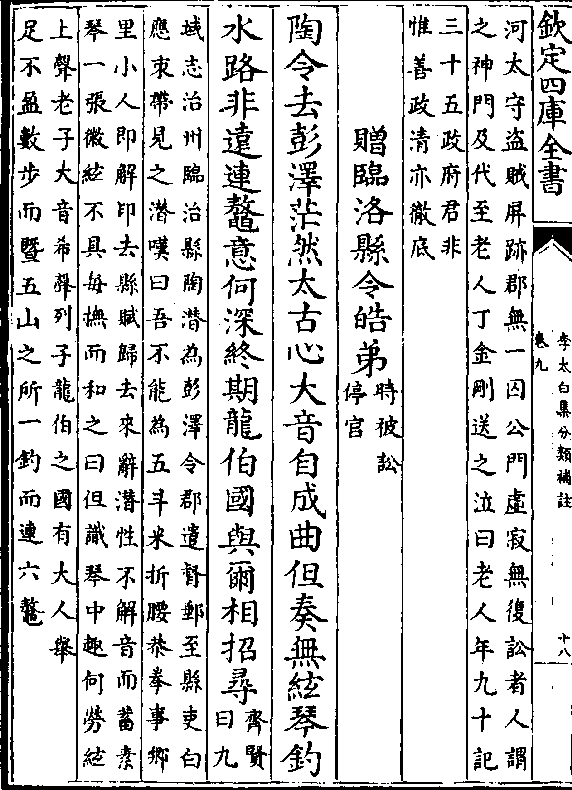 欽定四庫全書
李太白集分類補註
卷九
十八
河太守盗賊屏跡郡無一囚公門虚寂無復訟者人謂
之神門及代至老人丁金剛送之泣曰老人年九十記
三十五政府君非
惟善政清亦徹底
贈臨洺縣令皓弟
時被訟
停官
陶令去彭澤茫然太古心大音自成曲但奏無絃琴釣
水路非遠連鼇意何深終期龍伯國與爾相招尋
齊賢
曰九
域志洺州臨洺縣陶潛為彭澤令郡遣督郵至縣吏白
應束帶見之潛嘆曰吾不能為五斗米折腰恭拳事鄉
里小人即解印去縣賦歸去來辭潛性不解音而蓄素
琴一張徽絃不具每撫而和之曰但識琴中趣何勞絃
上聲老子大音希聲列子龍伯之國有大人舉
足不盈數步而暨五山之所一釣而連六鼇